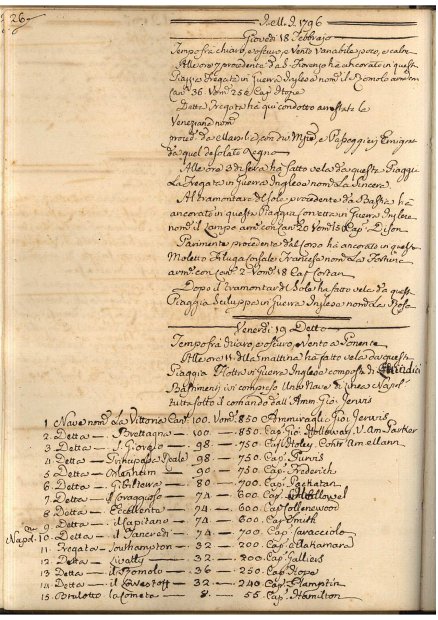 26
Dell. 1796
Giovedi 18 Febbrajo
Tempo frà chiaro, e oscuro, e Vento Variabile poco, e calme
Alle ore 7 procedente da S. Fiorenzo hà ancorato in questa
Piazza Fregata in Guerra Inglese nom. il Romolo arm. con
Can. 36. Vom. 250 Cap. Hope
Detta Fregata hà qui condotto arrestata le
Veneziano nom.
proced. da Marsil. e Passeggieri Emigra
da quel desolato Regno
Alle ore 3 di sera hà fatto vela da questa Piaggia
La Fregata in Guerra Inglese nom. La Sincera
Al tramontare del sole procedente da Bastia hà
ancorato in questa Piaggia Corvetta in Guerra Inglese
nom. il Lampo arm. con Can. 20 Vom. 150 Cap.
Parimente procedente dal Corso hà ancorato in questo
Moletto Filuga Corsale Francesa nom. La Fortuna
arm. con Can. 2 Vom. 18 Cap.
Dopo il tramontar del Sole hà fatto vela da questa
Piaggia Sciluppa in Guerra Inglese nom. La Rosa
Venerdi 19 Detto
Tempo frà chiaro, e oscuro, e Vento a Ponente
Alle ore 11 della mattina hà fatto vela da questa
Piaggia Flotta in Guerra Inglese composta di Quindici
Bastimenti ivi compreso Una Nave di Linea Napol.
tutta sotto il comando dell' Amm. Gio. Jervis
1 Nave nom. La Vittoria Can. 100. Vom. 850 Ammiraglio Gio. Jervis
2. Detta — Brettagna — 100. — 850. Cap. V. Am. Parker
3. Detta — S. Giorgio — 98 — 750. Cap.
4. Detta — Reale — 98 — 750. Cap. Purvis
5. Detta — — 90 — 750. Cap. Frederich
6. Detta — Gibiltiera — 80 — 700. Cap.
7. Detta — il Coraggioso — 74 — 600 Cap.
8. Detta — Eccellente — 74 — 600 Cap. Collenewood
9. Detta — il Capitano — 74 — 600 Cap. Smith
Napol. 10. Detta — il Tancredi — 74 — 700 Cap. Caracciolo
11. Fregata — Southampton — 32 — 200 Cap. Macnamara
12. Detta — — 32 — 200 Cap.
13. Detta — il Romolo — 36 — 250 Cap. Hope
14. Detta — il Lavestoff — 32 — 240 Cap. Plamptin
15. Brulotto la Cometa — 8 — 55 Cap. Hamilton